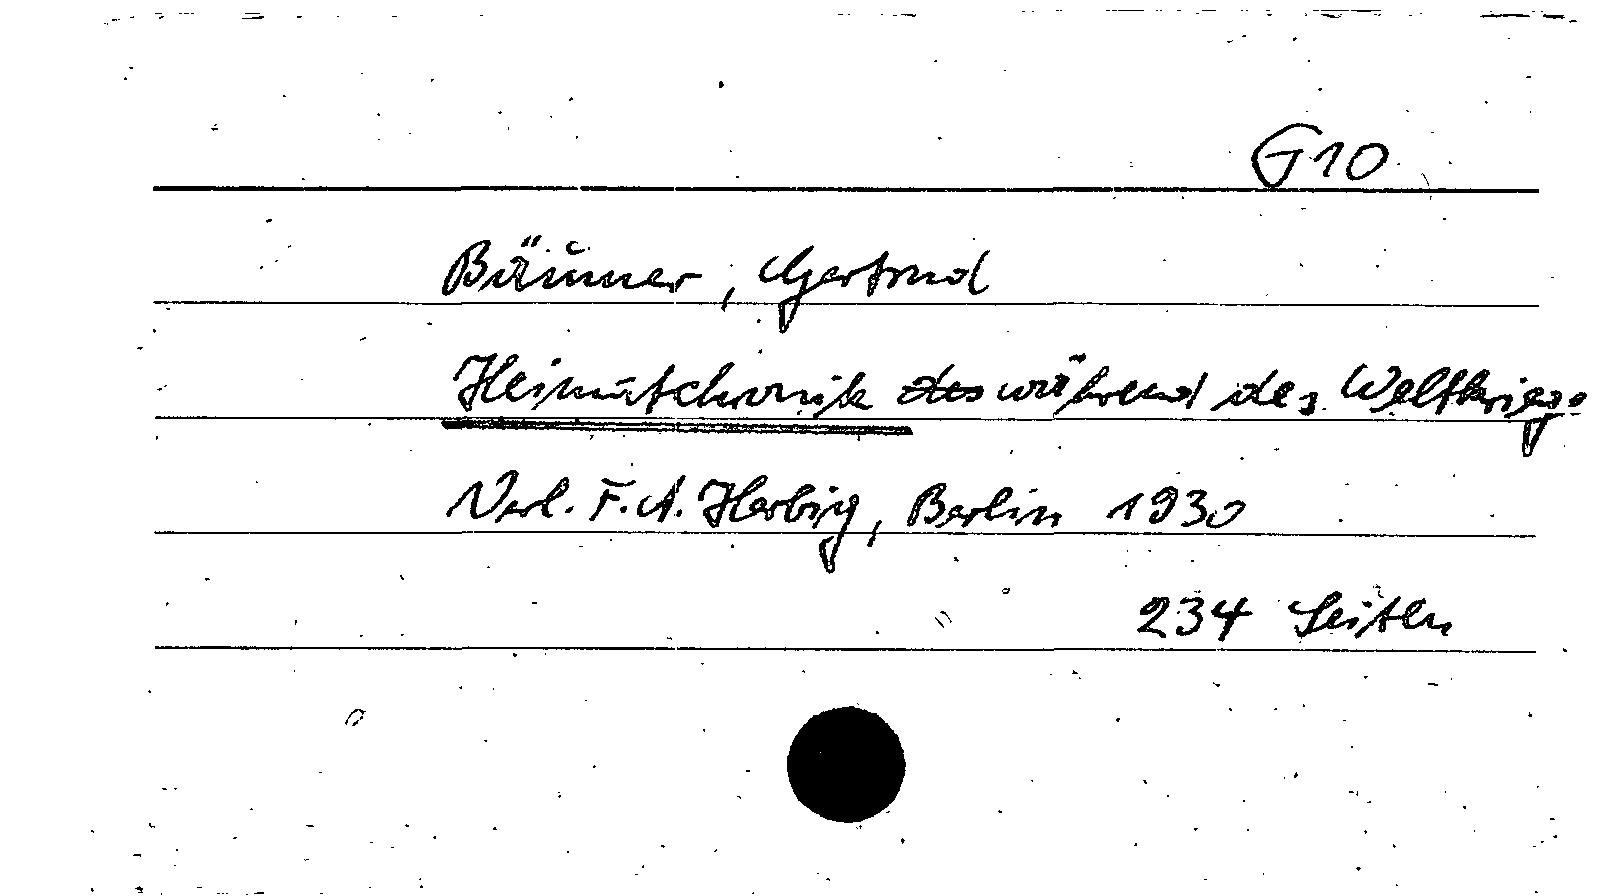 G10
Bäumer, Gertrud
Heimatchronik des während des Weltkriegs.
Verl. F. A. Herbig, Berlin 1930
234 Seiten